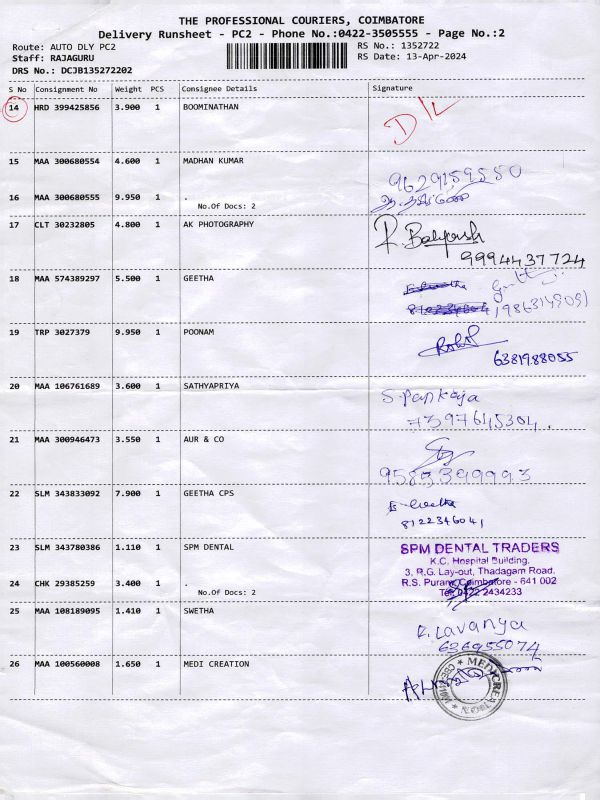 THE PROFESSIONAL COURIERS, COIMBATORE
Delivery Runsheet - PC2 - Phone No.:0422-3505555 - Page No.:2
Route: AUTO DLY PC2
Staff: RAJAGURU
DRS No.: DCJB135272202
RS No.: 1352722
RS Date: 13-Apr-2024
S No Consignment No Weight PCS Consignee Details Signature
14 HRD 399425856 3.900 1 BOOMINATHAN D/L
15 MAA 300680554 4.600 1 MADHAN KUMAR
9629159550
16 MAA 300680555 9.950 1 .
No.Of Docs: 2
17 CLT 30232805 4.800 1 AK PHOTOGRAPHY
9994437724
18 MAA 574389297 5.500 1 GEETHA
19 TRP 3027379 9.950 1 POONAM
6381988055
20 MAA 106761689 3.600 1 SATHYAPRIYA S. Pankaja
7397645304.
21 MAA 300946473 3.550 1 AUR & CO
9585399993
22 SLM 343833092 7.900 1 GEETHA CPS E. Geetha
8122346041
23 SLM 343780386 1.110 1 SPM DENTAL SPM DENTAL TRADERS
K.C. Hospital Building,
3, R.G. Lay-out, Thadagam Road,
24 CHK 29385259 3.400 1 . R.S. Puram, Coimbatore - 641 002
No.Of Docs: 2 Tel: 0422 2434233
25 MAA 108189095 1.410 1 SWETHA R. Lavanya
636955074
26 MAA 100560008 1.650 1 MEDI CREATION MEDI CREATION